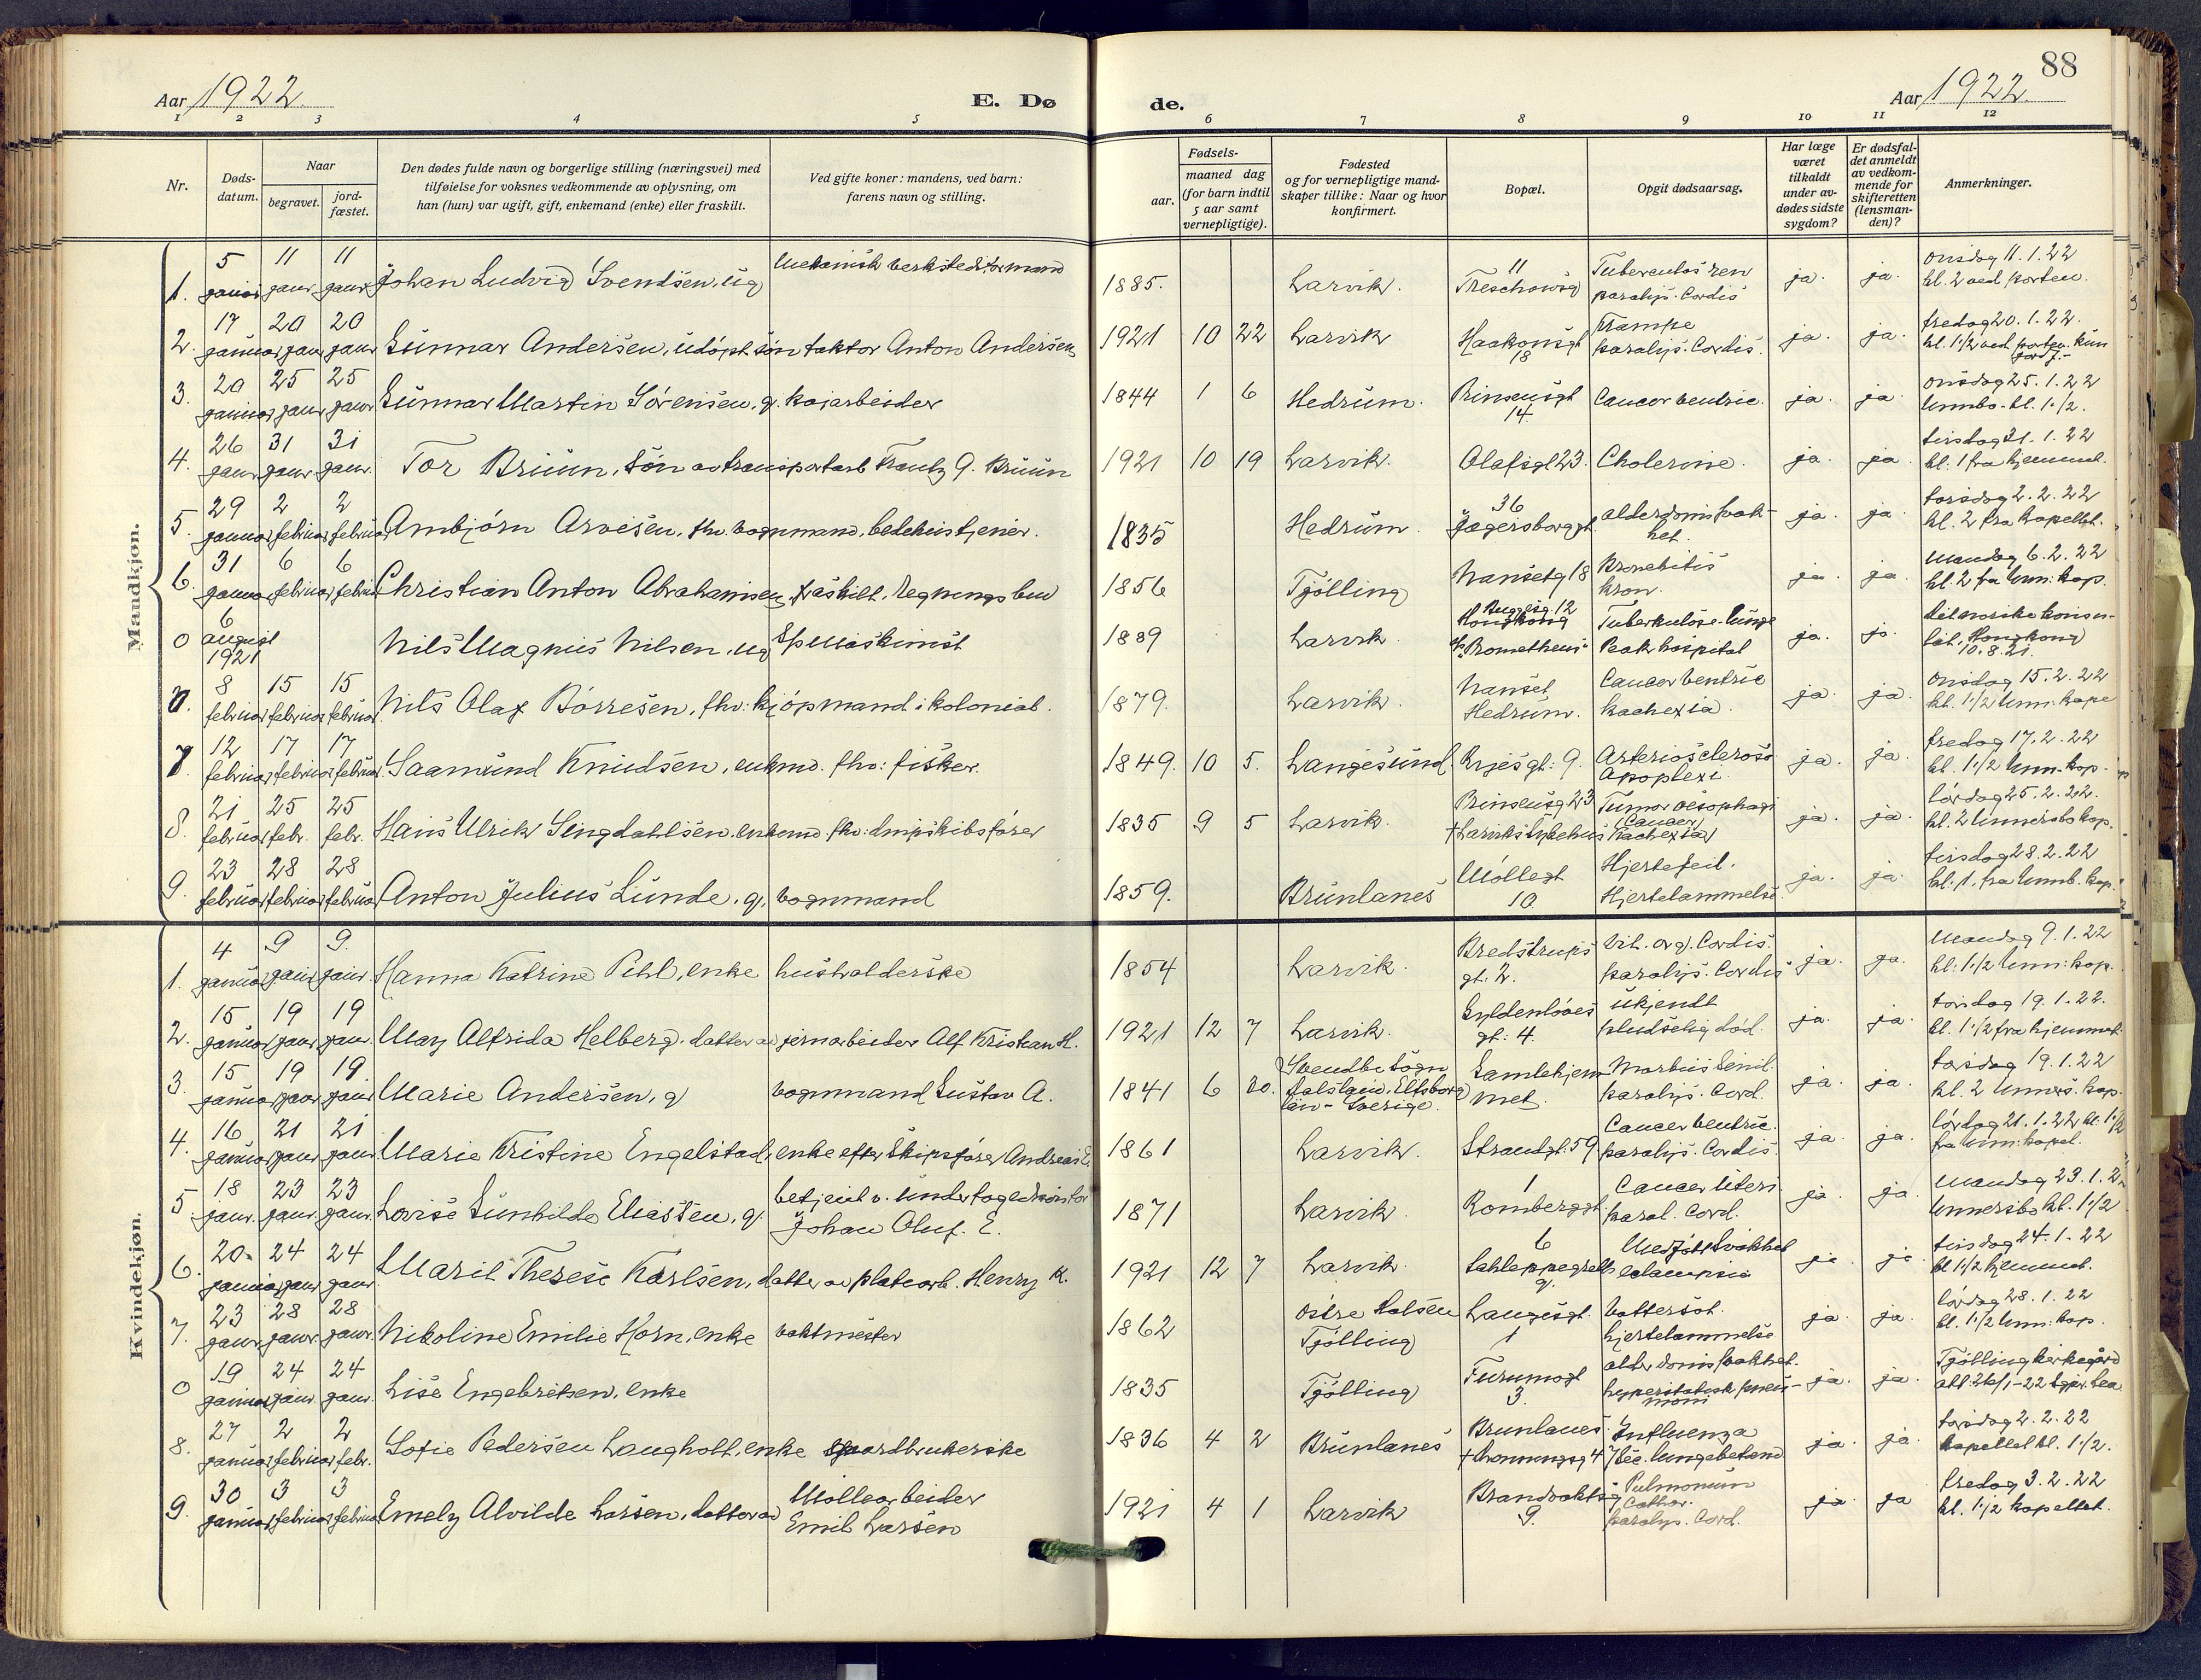 88
Aar 1922.
E. Dø
de.
Aar 1922.
1 2 3 4 5 6 7 8 9 10 11 12
Nr.
Døds-
datum.
Naar
begravet.
jord-
fæstet.
Den dødes fulde navn og borgerlige stilling (næringsvei) med
tilføielse for voksnes vedkommende av oplysning, om
han (hun) var ugift, gift, enkemand (enke) eller fraskilt.
Ved gifte koner: mandens, ved barn:
farens navn og stilling.
Fødsels-
aar.
maaned dag
(for barn indtil
5 aar samt
vernepligtige).
Fødested
og for vernepligtige mand-
skaper tillike: Naar og hvor
konfirmert.
Bopæl.
Opgit dødsaarsag.
Har læge
været
tilkaldt
under av-
dødes sidste
sygdom?
Er dødsfal-
det anmeldt
av vedkom-
mende for
skifteretten
(lensman-
den)?
Anmerkninger.
Mandkjøn.
5 11 11 Mekanisk verksted formand 11 Tuberculos ren onsdag 11.1.22
1. januar janr janr Johan Ludvig Svendsen, ug 1885. Larvik. Treschowsg paralys. Cordis ja. ja. kl. 2 ved porten.
17 20 20 Krampe fredag 20.1.22.
2. januar janr janr Gunnar Andersen, udöpt sön faktor Anton Andersen 1921 10 22 Larvik Haakonsgt 18 paralys. Cordis. ja. ja. kl. 1 1/2 ved porten. kun jordf.-
20 25 25 onsdag 25.1.22
3. januar janr janr Gunnar Martin Sörensen, g. kajarbeider 1844 1 6 Hedrum. Prinsensgt 14. Cancer ventric. ja. ja. Unnbo. kl. 1 1/2.
26 31 31 tirsdag 31.1.22
4. janr janr janr. Tor Bruun, sön av transportarb Frantz G. Bruun 1921 10 19 Larvik. Olafsgt 23. Cholerine. ja. ja. kl. 1 fra hjemmet.
29 2 2 36 torsdag 2.2.22
5. januar februar februar Ambjörn Arvesen, fhv. vognmand, bedehustjener. 1835 Hedrum. Jægersborggt alderdomssvak-
het. ja. ja. kl. 2 fra kapellet.
31 6 6 Bronchitis Mandag 6.2.22
6. januar februar februar Christian Anton Abrahamsen, fraskilt, Regningsbud 1856 Tjölling Nansetg 18 kron. ja. ja. kl. 2 fra Unn. kap.
6 Hongkong Tuberkulöse lunge det norske konsu-
0 august 1921 Nils Magnus Nilsen, ug 3die maskinist 1889 Larvik. "Prometheus" Peak hospital ja. ja. lat, Hongkong 10.8.21.
8 15 15 Nanset Cancer ventric onsdag 15.2.22
7. februar februar februar Nils Olaf Börresen, fhv: kjöpmand i kolonial. 1879. Larvik. Hedrum. kachexia. ja. ja. kl. 1 1/2 Unn. kape
12 17 17 Arteriosclerose fredag 17.2.22
7. februar februar februar Saamund Knudsen, enkmd. fhv: fisker. 1849. 10 5. Langesund. Brjesgt: 9. Apoplexi. ja. ja. kl. 1 1/2 Unn. kap.
21 25 25 Prinsensg 23 Tumor oesophagi lördag 25.2.22.
8. februar febr. febr. Hans Ulrik Lingdahlsen, enkemd. fhv: dampskibsförer 1835 9 5 Larvik. † Larviks Sykehus (Cancer) (Kachexia) ja. ja. kl. 2 Unnersbo kap.
23 28 28 Möllegt Hjertefeil. tirsdag 28.2.22
9. februar februar februar Anton Julius Lunde, g. vognmand 1859. Brunlanes 10. Hjertelammelse. ja. ja. kl. 1. fra Unnb. kap.
Kvindekjøn.
4 9 9. Bredstrups Vit. org. Cordis. Mandag 9.1.22
1. januar janr janr. Hanna Katrine Pihl, enke husholderske 1854 Larvik. gt. 2. paralys. Cordis ja. ja. kl: 1 1/2 Unn: kap.
15 19 19 Gyldenlöves ukjendt torsdag 19.1.22.
2. januar janr janr. May Alfrida Helberg. datter av jernarbeider Alf Kristian H. 1921 12 7 Larvik. gt: 4. pludselig död. ja. ja. kl. 1 1/2 fra hjemmet.
15 19 19. Samlehjem- Morbus Senil. torsdag 19.1.22
3. januar janr janr Marie Andersen, g vognmand Gustav A. 1841 6 20. Elfsborg län - Sverige. met. paralys. Cord. ja. ja. kl. 2 Unners. kap.
16 21 21 Cancer ventric. lördag 21.1.22 kl. 1 1/2
4. januar janr janr. Marie Kristine Engelstad, enke efter Skipsförer Andreas E. 1861 Larvik. Strandgt: 59 paralys. Cordis. ja. ja. fra Unn: kapel.
18 23 23 betjent v. Undertogedkontor 1 Cancer Uteri Mandag 23.1.2
5. janr. janr. janr. Lovise Gunhilde Eliassen, g. Johan Oluf. E. 1871 Larvik. Romberggt paral. Cord. ja. ja. Unnersbo kl. 1 1/2
20. 24 24 6 Medfött svakhet tirsdag 24.1.22
6. januar janr janr. Marit Therese Karlsen, datter av platearb. Henry K. 1921 12 7 Larvik. eclampsia ja ja kl 1 1/2 hjemmet.
23 28 28 östre Halsen Langesgt Vattersot. lördag 28.1.22
7. janr janr. janr. Nikoline Emilie Horn, enke vaktmester 1862 Tjölling 1 hjertelammelse ja. ja. kl. 1 1/2 Unn. kap.
19 24 24 Furumogt alderdomssvakhet. Tjölling kirkegård
0 januar janr. janr. Lise Engebretsen, enke 1835 Tjölling 3. hypostatisk pneu-
moni ja. ja.
27 2 2 Brunlanes Influenza torsdag 2.2.22
8. januar februar febr. Sofie Pedersen Langholt, enke gaardbrukerske 1836 4 2 Brunlanes † Dronningsg 47 Sec. lungebetænd ja. ja. kapellet kl. 1 1/2.
30 3 3 Möllearbeider Brandvaktsg Pulmonum fredag 3.2.22
9. januar februar februar Emely Alvilde Larsen, datter av Emil Larsen 1921 4 1 Larvik 9. Cathar. paralys. Cord. ja. ja kl. 1 1/2 kapellet.